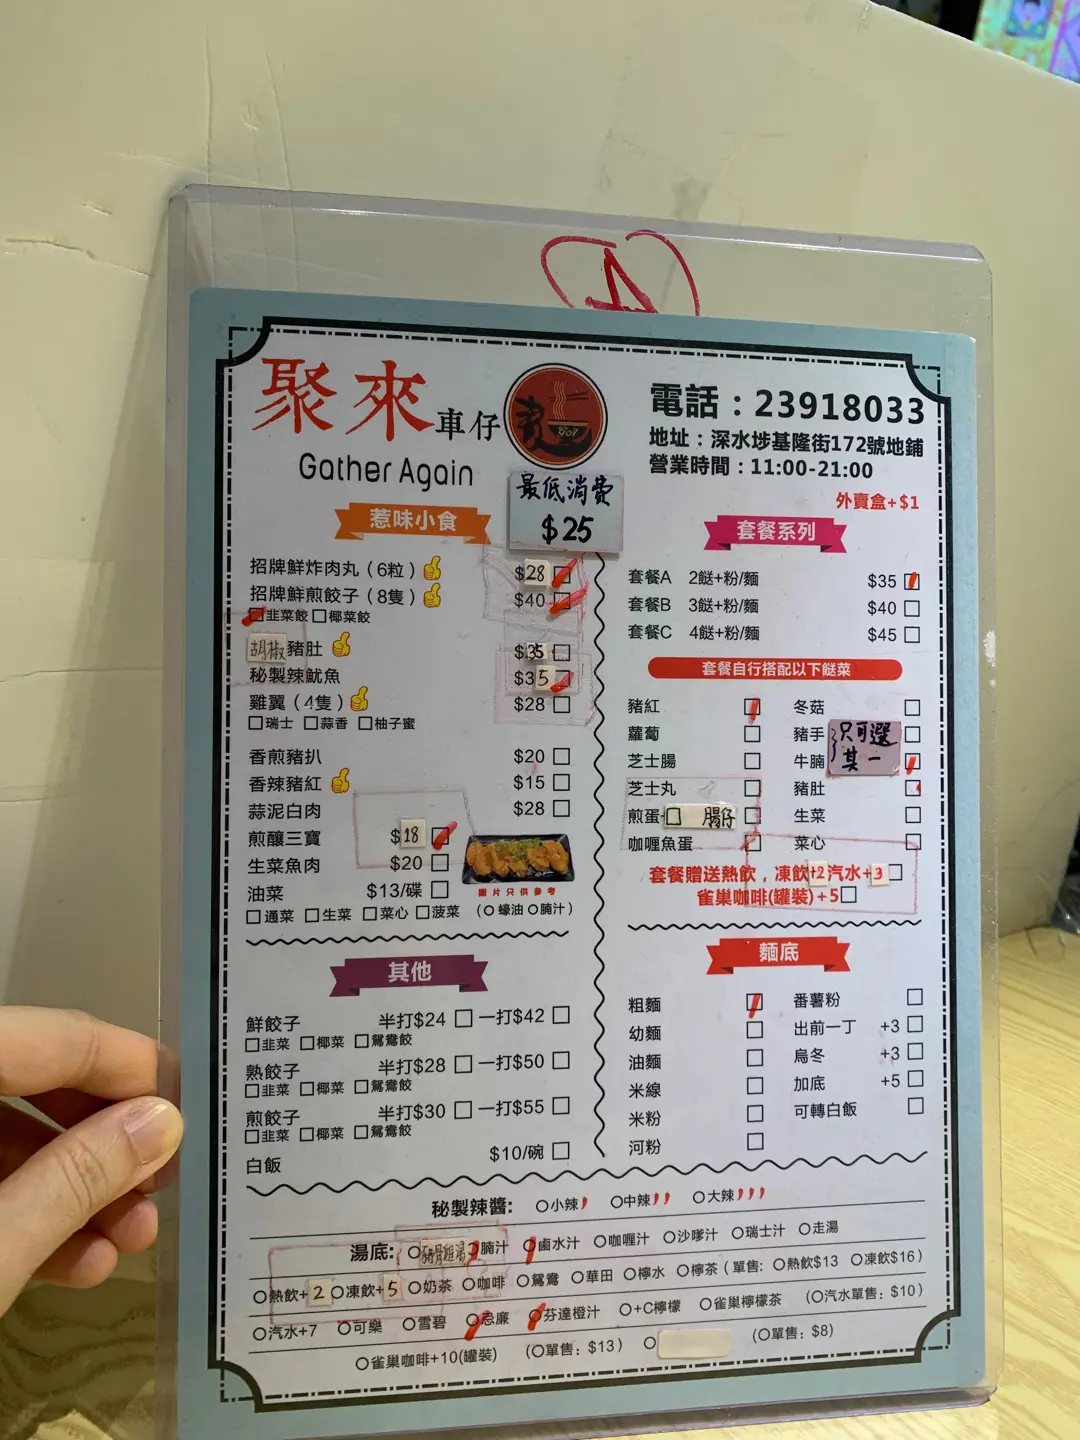 A
聚來車仔麵
Gather Again
電話：23918033
地址：深水埗基隆街172號地鋪
營業時間：11:00-21:00
最低消費
$25
外賣盒+$1
惹味小食
招牌鮮炸肉丸（6粒） $28
招牌鮮煎餃子（8隻） $40
韭菜餃 椰菜餃
胡椒豬肚 $35
秘製辣魷魚 $35
雞翼（4隻） $28
瑞士 蒜香 柚子蜜
香煎豬扒 $20
香辣豬紅 $15
蒜泥白肉 $28
煎釀三寶 $18
生菜魚肉 $20
油菜 $13/碟
通菜 生菜 菜心 菠菜 （蠔油 腩汁）
圖片只供參考
套餐系列
套餐A 2餸+粉/麵 $35
套餐B 3餸+粉/麵 $40
套餐C 4餸+粉/麵 $45
套餐自行搭配以下餸菜
豬紅 冬菇
蘿蔔 豬手
芝士腸 牛腩
只可選
其一
芝士丸 豬肚
煎蛋 腸仔 生菜
咖喱魚蛋 菜心
套餐贈送熱飲，凍飲+2汽水+3
雀巢咖啡(罐裝)+5
其他
鮮餃子 半打$24 一打$42
韭菜 椰菜 鴛鴦餃
熟餃子 半打$28 一打$50
韭菜 椰菜 鴛鴦餃
煎餃子 半打$30 一打$55
韭菜 椰菜 鴛鴦餃
白飯 $10/碗
麵底
粗麵 番薯粉
幼麵 出前一丁 +3
油麵 烏冬 +3
米線 加底 +5
米粉 可轉白飯
河粉
秘製辣醬: 小辣 中辣 大辣
湯底: 豬骨雞湯 腩汁 鹵水汁 咖喱汁 沙嗲汁 瑞士汁 走湯
熱飲+2 凍飲+5 奶茶 咖啡 鴛鴦 華田 檸水 檸茶（單售: 熱飲$13 凍飲$16）
汽水+7 可樂 雪碧 忌廉 芬達橙汁 +C檸檬 雀巢檸檬茶 （汽水單售：$10）
雀巢咖啡+10(罐裝) （單售：$13） （單售：$8）